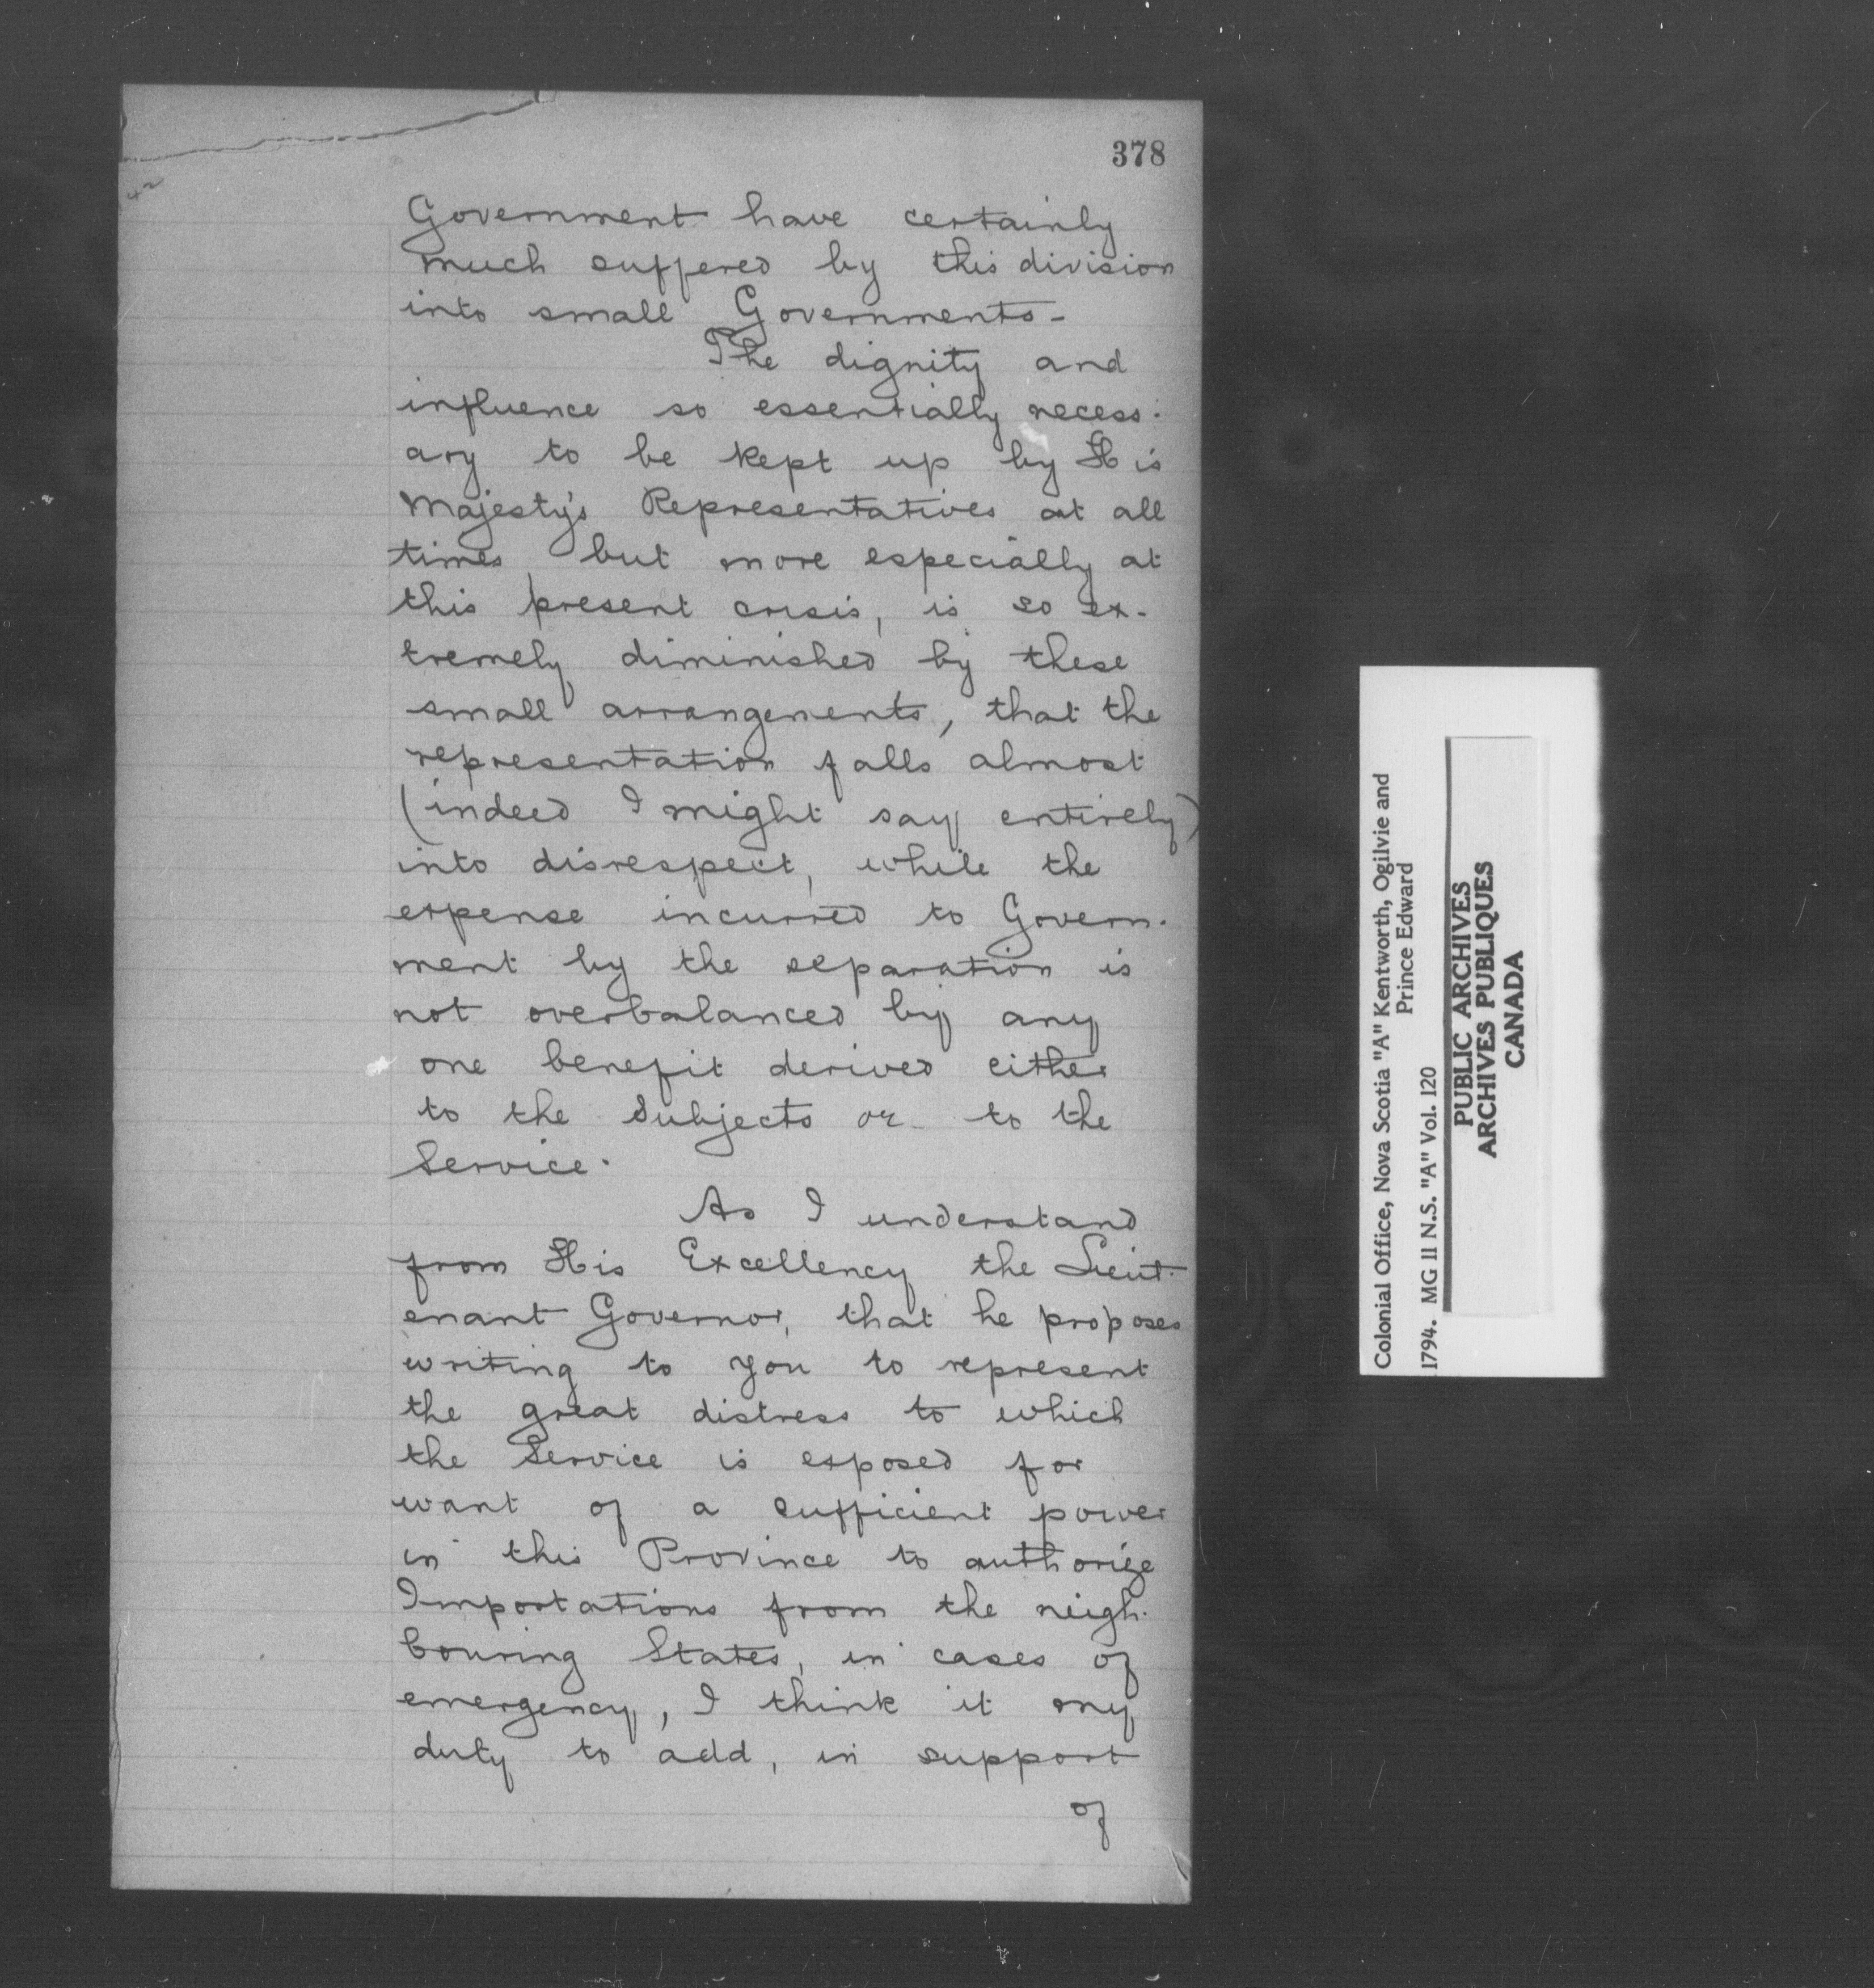 378
42
Government have certainly
much suffered by this division
into small Governments-
The dignity and
influence so essentially necess-
ary to be kept up by His
Majesty's Representatives at all
times but more especially at
this present crisis, is so ex-
tremely diminished by these
small arrangements, that the
representation falls almost
(indeed I might say entirely)
into disrespect, while the
expense incurred to Govern-
ment by the separation is
not overbalanced by any
one benefit derived either
to the Subjects or to the
Service.
As I understand
from His Excellency the Lieut-
enant Governor, that he proposes
writing to you to represent
the great distress to which
the Service is exposed for
want of a sufficient power
in this Province to authorize
Importations from the neigh-
bouring States, in cases of
emergency, I think it my
duty to add, in support
of
Colonial Office, Nova Scotia "A" Kentworth, Ogilvie and
Prince Edward
1794. MG 11 N.S. "A" Vol. 120
PUBLIC ARCHIVES
ARCHIVES PUBLIQUES
CANADA